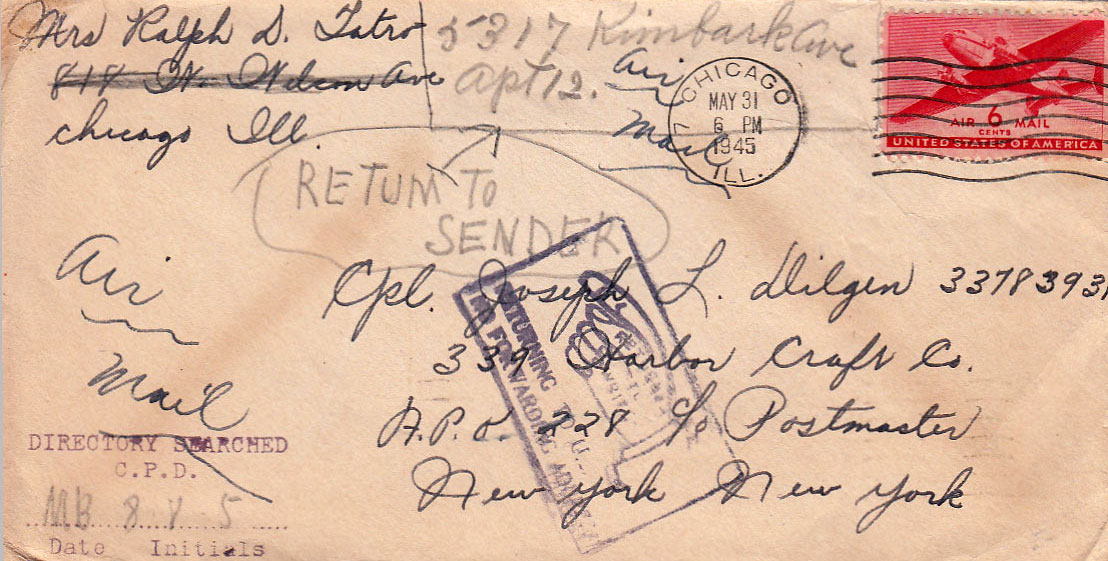 Mrs Ralph D. Tatro
818 W. Wilson Ave
Chicago Ill.
5317 Kimbark Ave
Apt 12.
Air
Mail
CHICAGO
MAY 31
6 PM
1945
ILL.
AIR 6 MAIL
CENTS
UNITED STATES OF AMERICA
RETURN TO
SENDER
Air
Mail
Cpl. Joseph L. Dilgen 33783931
339 Harbor Craft Co.
A.P.O. 228 c/o Postmaster
New York New York
RETURNING TO U.S.
NO FORWARDING ADDRESS
DIRECTORY SEARCHED
C.P.D.
Date Initials